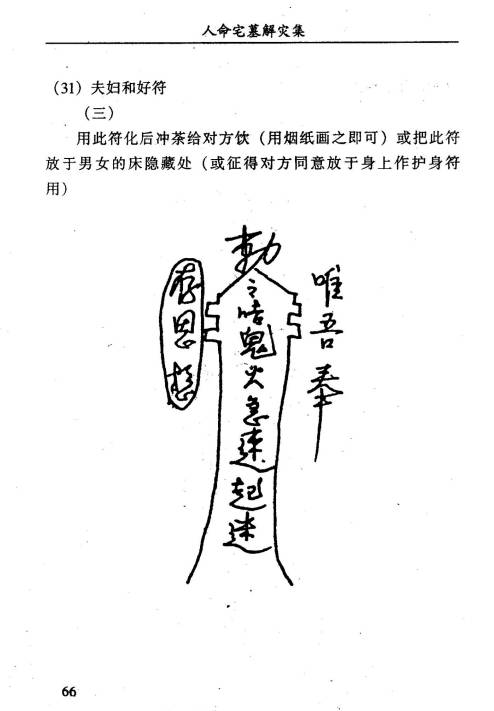 人命宅墓解灾集
(31) 夫妇和好符
(三)
用此符化后冲茶给对方饮（用烟纸画之即可）或把此符
放于男女的床隐藏处（或征得对方同意放于身上作护身符
用）
勅
鬼火急速
起速
唯吾奉
思
66